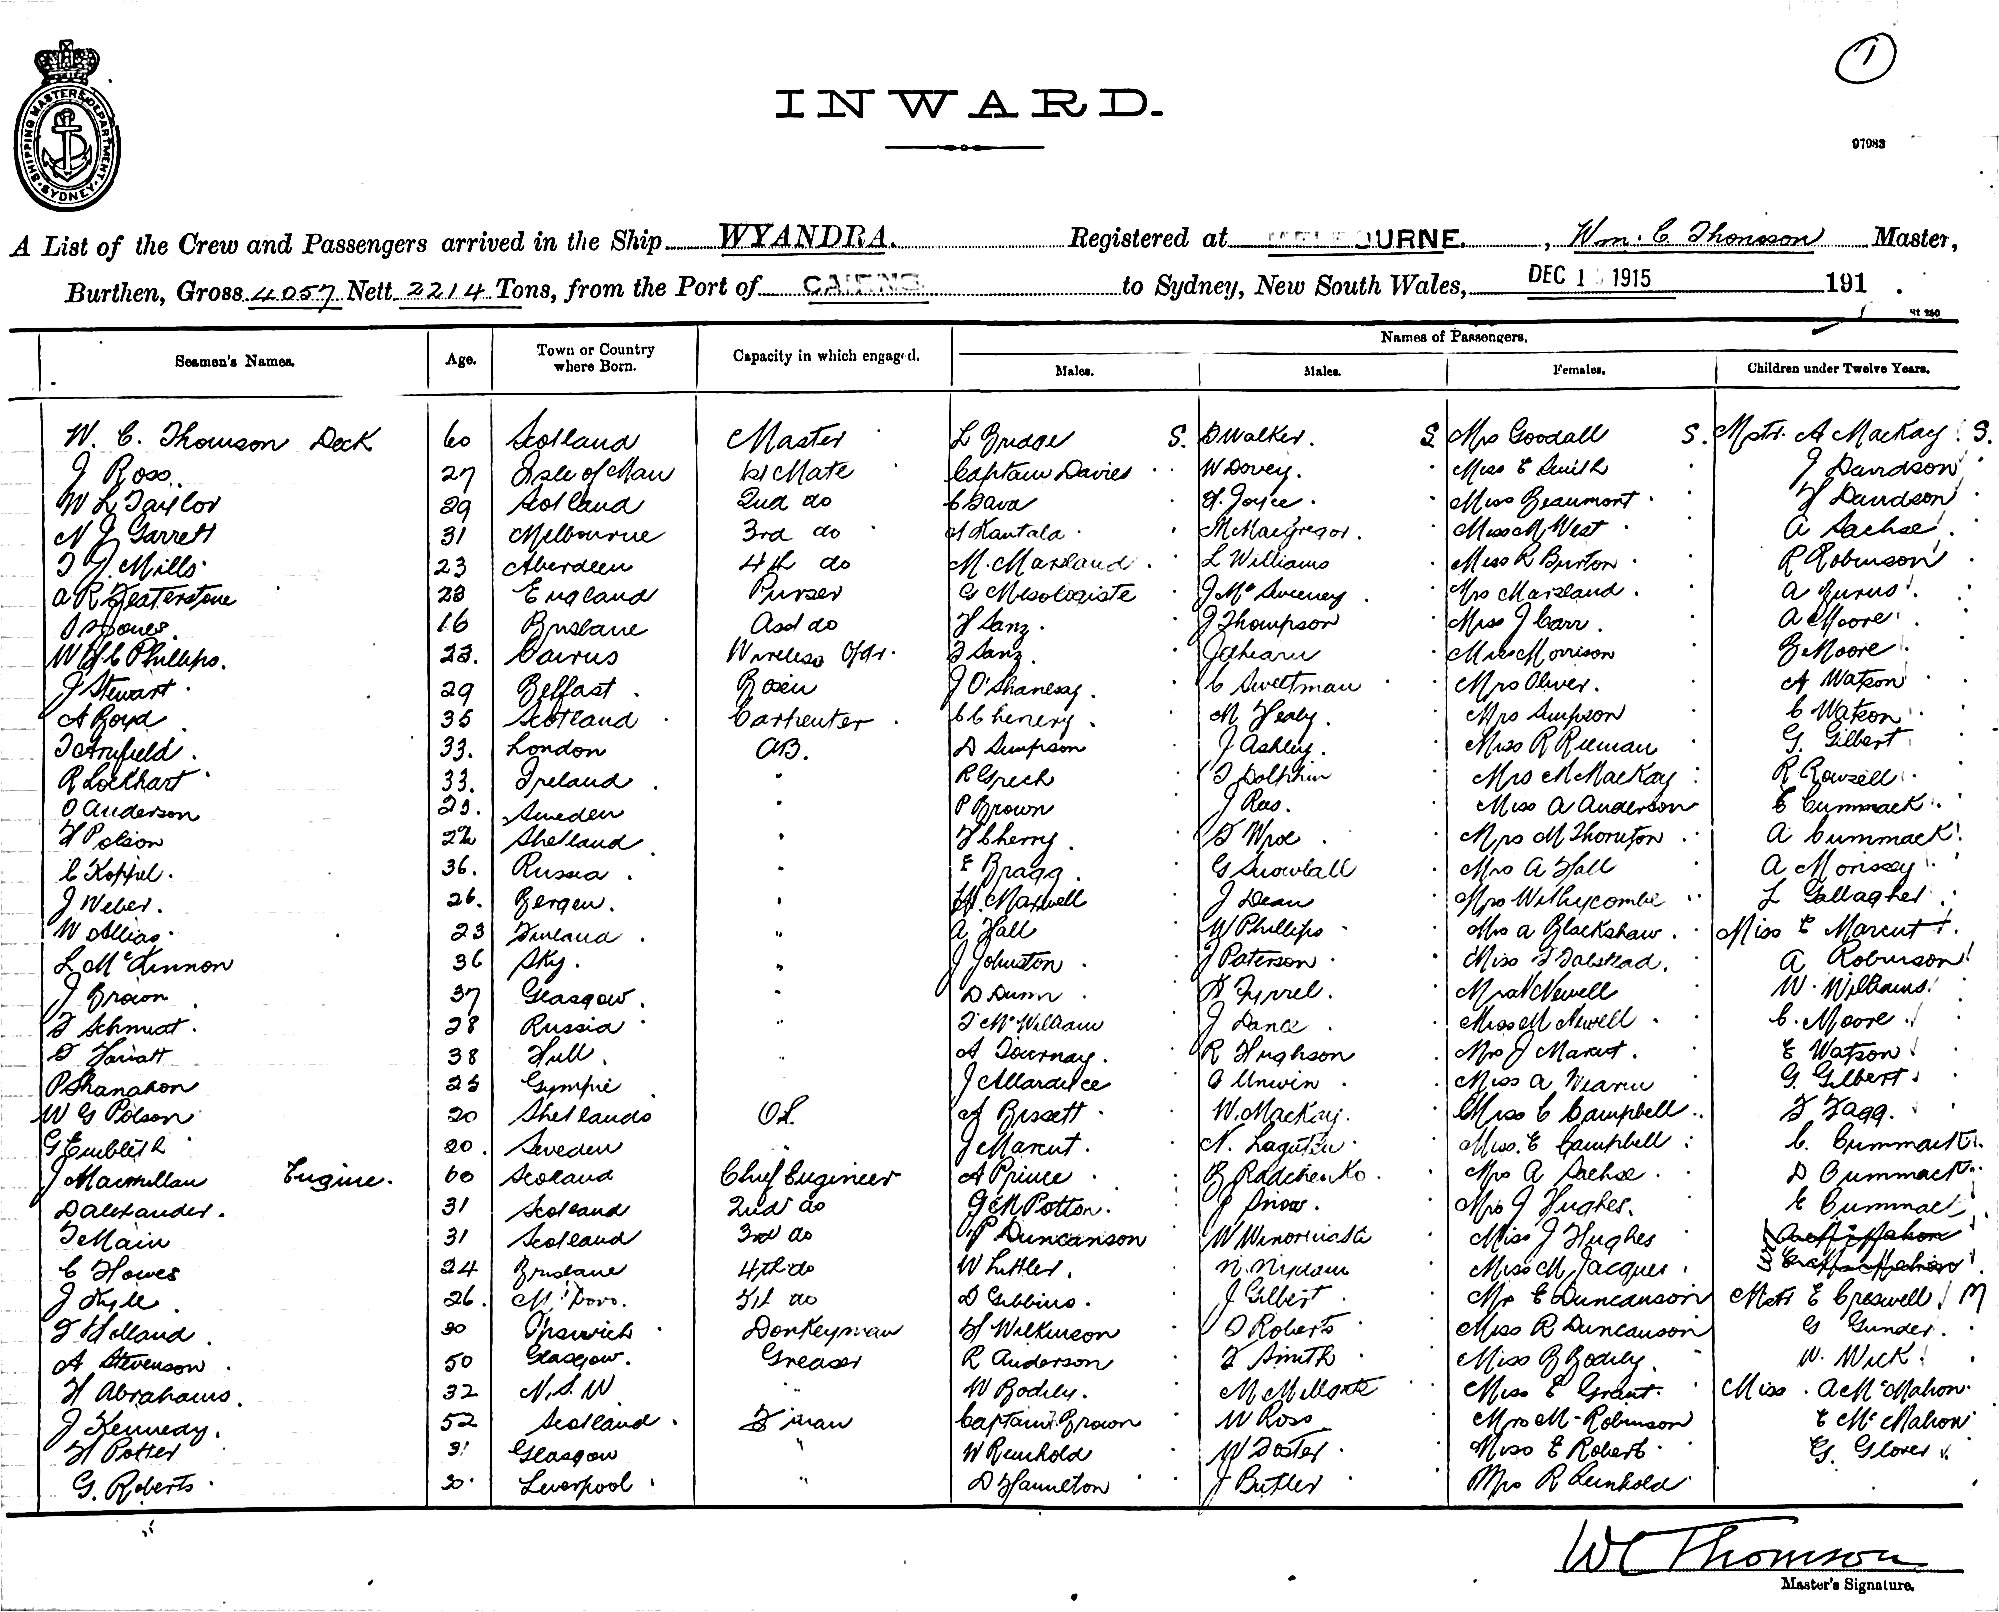 SHIPPING MASTERS DEPARTMENT. SYDNEY
1
INWARD.
97083
A List of the Crew and Passengers arrived in the Ship WYANDRA. Registered at MELBOURNE. , Wm. C Thomson Master,
Burthen, Gross 4057 Nett 2214 Tons, from the Port of CAIRNS to Sydney, New South Wales, DEC 1 1915 191 .
Names of Passengers.
Seamen's Names. Age. Town or Country where Born. Capacity in which engaged. Males. Males. Females. Children under Twelve Years.
W. C. Thomson Deck 60 Scotland Master L Bridge S. D Walker. S. Mrs Goodall S. Mstr. A MacKay S.
J Ross. 27 Isle of Man 1st Mate Captain Davies W Dovey. Miss E Smith J Davidson
W L Taylor 29 Scotland 2nd do C Sava F. Joyce. Miss Beaumont H Davidson
N J Garrett 31 Melbourne 3rd do Kantala M MacGregor. Miss M West A Sachse
T J. Mills 23 Aberdeen 4th do M. Marsland L Williams Miss R Burton R Robinson
A R Featerstone 28 England Purser G Mesologiste J McSweeney Mrs Marsland. A Burns
Jones. 16 Brisbane Asst do F Sanz. J Thompson Miss J Carr. A Moore
W H C Phillips. 23. Cairns Wireless Opr. Sanz. J Ahearn Miss Morrison B Moore
J Stewart 29 Belfast Bosin J O'Shanesay. C Sweetman Mrs Oliver. A Watson
A Boyd 35 Scotland Carpenter C Chenery. M Healy. Mrs Simpson C Watson
T Armfield. 33. London AB. D Simpson J Ashley. Miss R Rieman G. Gilbert
R Lockhart 33. Ireland " R Grech T Dolphin Mrs M MacKay R Rowsell
O Anderson 23. Sweden " P Brown J Ras. Miss A Anderson E Cummack
H Polson 22 Shetland " H Cherry. Wroe Mrs M Thornton A Cummack
C Koppel. 36. Russia " E Bragg. G Snowball Mrs A Hall A Morissey
J Weber. 26. Bergen. " H. Maxwell J Dean Mrs Withycombe L Gallagher
W Allias 23 Finland " A Hall W Phillips Mrs A Blackshaw. Miss E Marcut
L McKinnon 36 Sky. " J Johnston J Paterson. Miss Talstead. A Robinson
J Brown 37 Glasgow. " D Dunn Tyrrel. Mrs Newell W. Williams
F Schmidt. 28 Russia " T McWilliam J Dance Miss M Newell C. Moore
38 Hull. " A Tournay. R Hughson Mrs J Marcut. E Watson
P Shanahan 25 Gympie " J Allardice O Unwin Miss A Wearn G. Gilbert
W G Polson 20 Shetlands O.S. A Bissett W. MacKay. Miss C Campbell Fagg.
G Emblich 20. Sweden " J Marcut. N. Lagutin Miss. E Campbell C. Cummack
J Macmillan Engine. 60 Scotland Chief Engineer A Prince B Radchenko. Mrs A Sachse D Cummack
D Alexander. 31 Scotland 2nd do G M Potton. J Mrs J Hughes. E Cummack
Main 31 Scotland 3rd do P Duncanson W Miss J Hughes
C Howes 24 Brisbane 4th do W Littler. N. Nydam Miss M Jacques
J Kyle 26. 5th do D Gibbins. J Gilbert Mrs E Duncanson Mstr E Creswell M
Holland 30 Ipswich Donkeyman H Wilkinson O Roberts Miss R Duncanson G Gunder.
A Stevenson 50 Glasgow. Greaser R Anderson F Smith Miss B Bodily. W. Wick
H Abrahams. 32 N.S.W " W Bodily. M Miss E Grant. Miss A McMahon
J Kennedy. 52 Scotland F'man Captain Brown W Ross Mrs M Robinson E McMahon
H Potter 31 Glasgow " W Reinhold W Doster Miss E Roberts G. Glover
G. Roberts 30 Liverpool " D Hamilton J Butler Mrs R Reinhold
W C Thomson
Master's Signature.